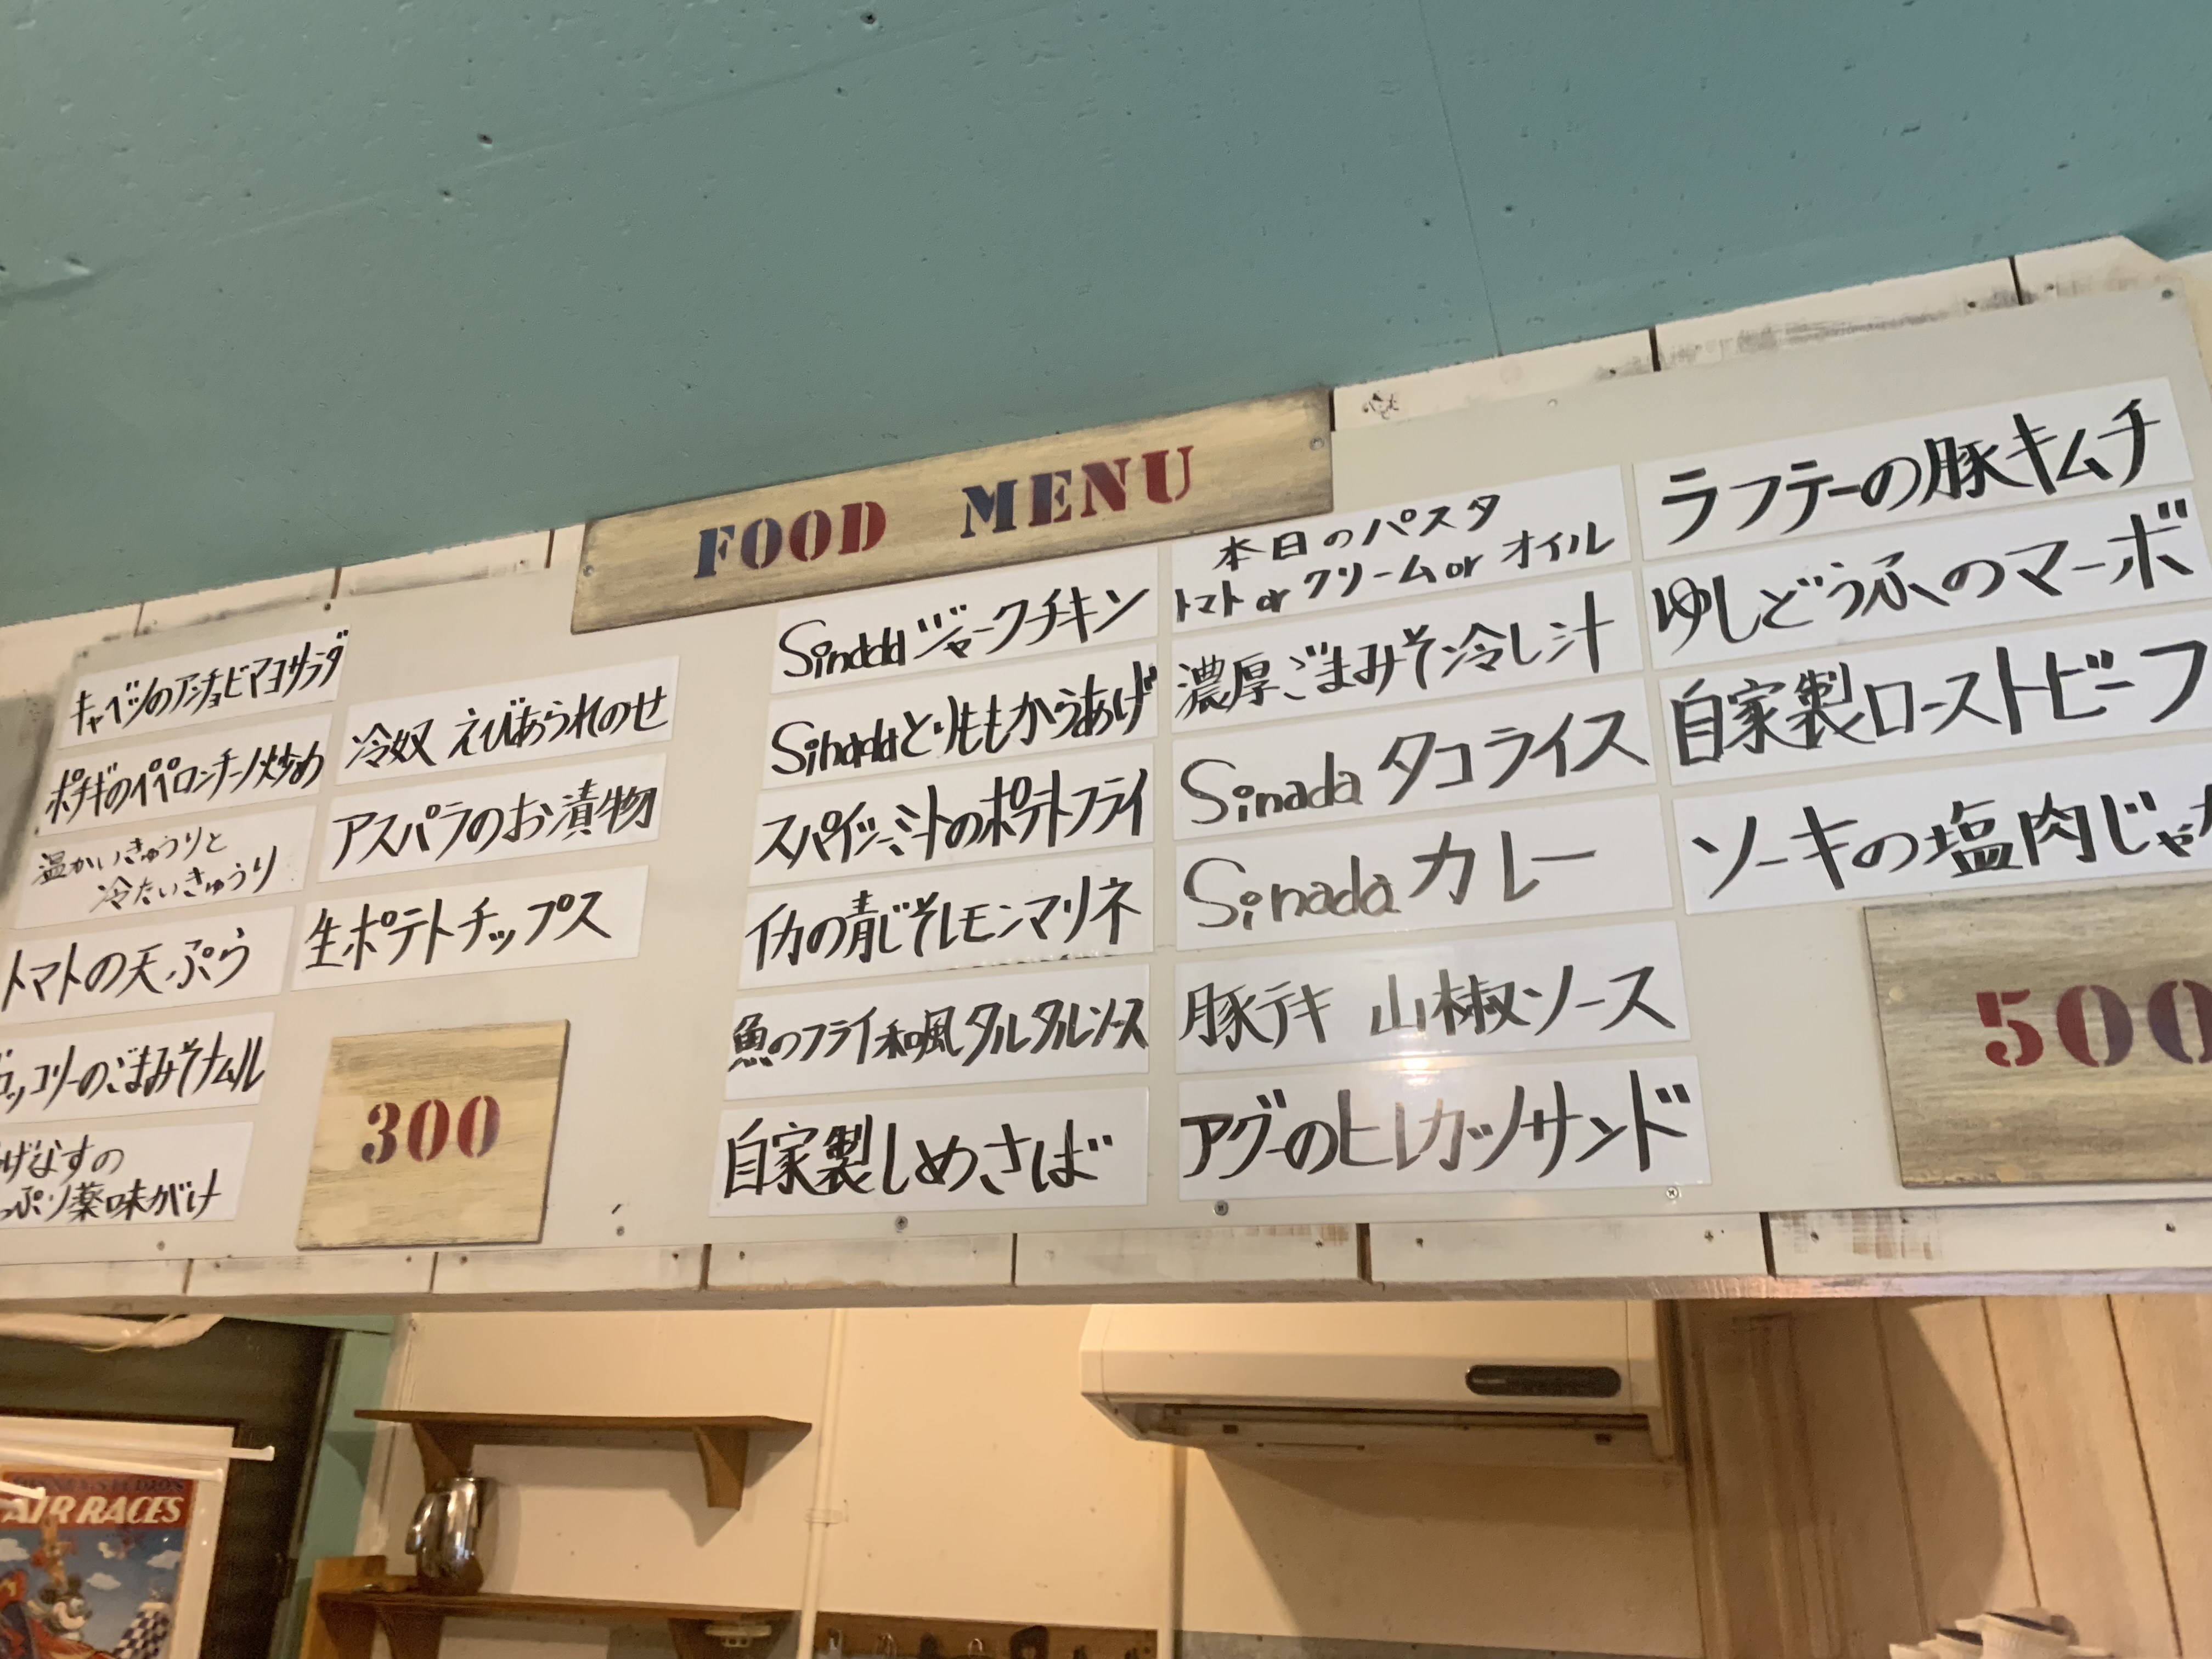 FOOD MENU
キャベツのアンチョビマヨサラダ
ポテギのペペロンチーノ炒め
温かいきゅうりと
冷たいきゅうり
トマトの天ぷら
ロッコリーのごまみそナムル
げなすの
っぷり薬味がけ
冷奴 えびあられのせ
アスパラのお漬物
生ポテトチップス
300
Sinadaジャークチキン
Sinadaとりももからあげ
スパイシーミートのポテトフライ
イカの青じそレモンマリネ
魚のフライ和風タルタルソース
自家製しめさば
本日のパスタ
トマト or クリーム or オイル
濃厚ごまみそ冷し汁
Sinada タコライス
Sinada カレー
豚テキ 山椒ソース
アグーのヒレカツサンド
ラフテーの豚キムチ
ゆしどうふのマーボ
自家製ローストビーフ
ソーキの塩肉じゃ
500
AIR RACES